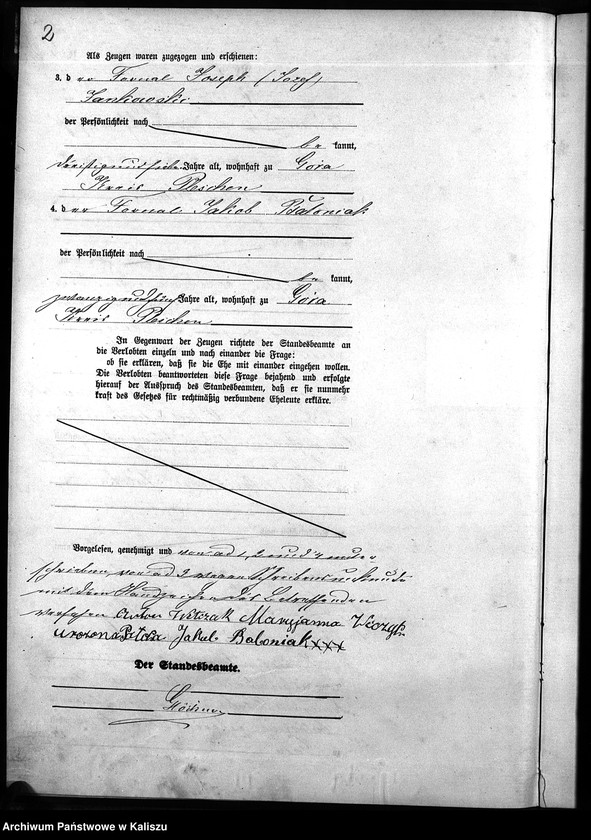 2
Als Zeugen waren zugezogen und erschienen:
3. der Fornal Joseph (Jozef)
Jankowski
der Persönlichkeit nach
be kannt,
dreißigundsieben Jahre alt, wohnhaft zu Góra
Kreis Pleschen
4. der Fornal Jakob Baloniak
der Persönlichkeit nach
be kannt,
zwanzigundfünf Jahre alt, wohnhaft zu Góra
Kreis Pleschen
In Gegenwart der Zeugen richtete der Standesbeamte an
die Verlobten einzeln und nach einander die Frage:
ob sie erklären, daß sie die Ehe mit einander eingehen wollen.
Die Verlobten beantworteten diese Frage bejahend und erfolgte
hierauf der Ausspruch des Standesbeamten, daß er sie nunmehr
kraft des Gesetzes für rechtmäßig verbundene Eheleute erkläre.
Vorgelesen, genehmigt und von ad 1, 2 und 4 unter
schrieben, von ad 3 wegen Schreibensunkunde
mit dem Handzeichen des Betreffenden
versehen Walczak Maryjanna
Jakub Baloniak xxx
Der Standesbeamte.